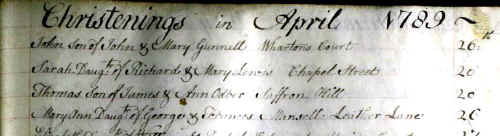 Christenings in April 1789
John Son of John & Mary Gunnell Whartons Court 26th
Sarah Daugtr of Richard & Mary Lewis Chapel Street 20
Thomas Son of James & Ann Oster Saffron Hill 20
Mary Ann Daugtr of George & Frances Mansell Leather Lane 26